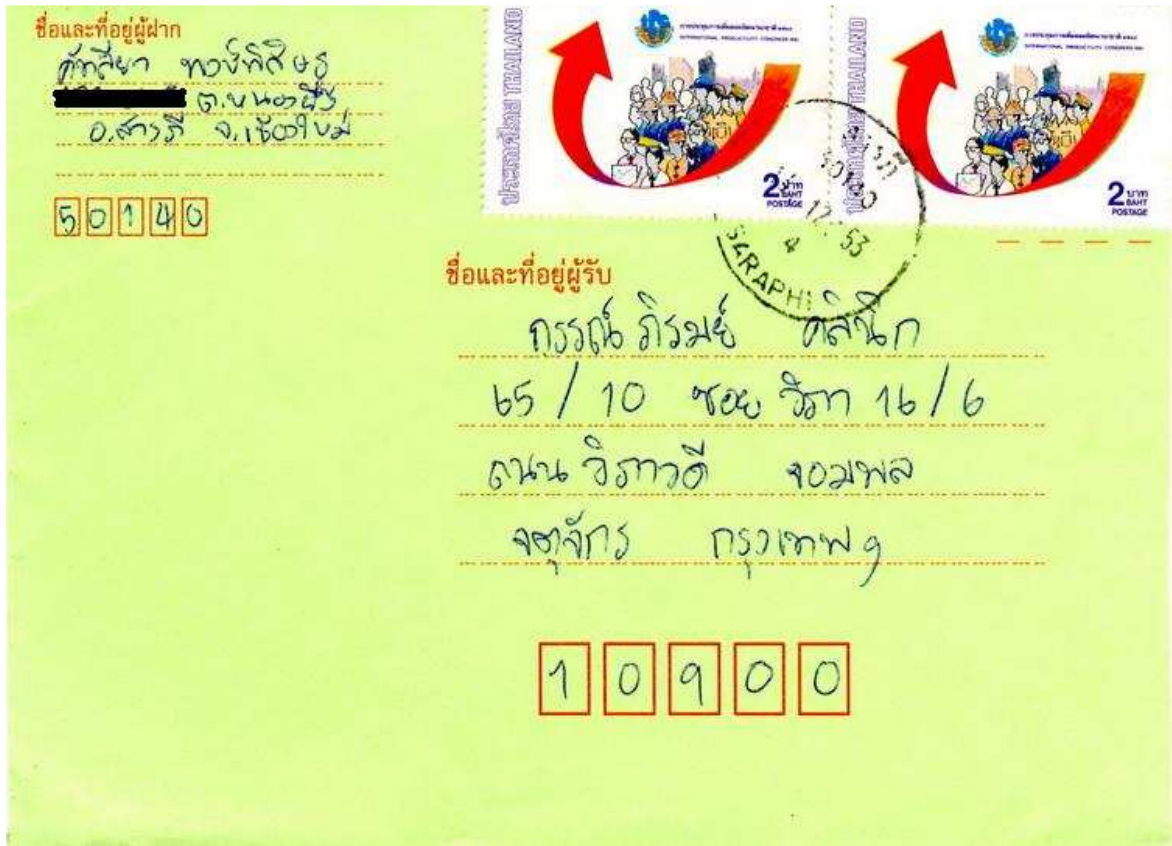 ชื่อและที่อยู่ผู้ฝาก
คัทลียา
ต.หนองผึ้ง
อ.สารภี จ.เชียงใหม่
50140
ประเทศไทย THAILAND
INTERNATIONAL PRODUCTIVITY CONGRESS
2 บาท
BAHT
POSTAGE
ประเทศไทย THAILAND
INTERNATIONAL PRODUCTIVITY CONGRESS
2 บาท
BAHT
POSTAGE
สารภี
50140
SARAPHI
ชื่อและที่อยู่ผู้รับ
กรรณ์ภิรมย์ คลินิก
65/10 ซอย วิภา 16/6
ถนน วิภาวดี จอมพล
จตุจักร กรุงเทพฯ
10900